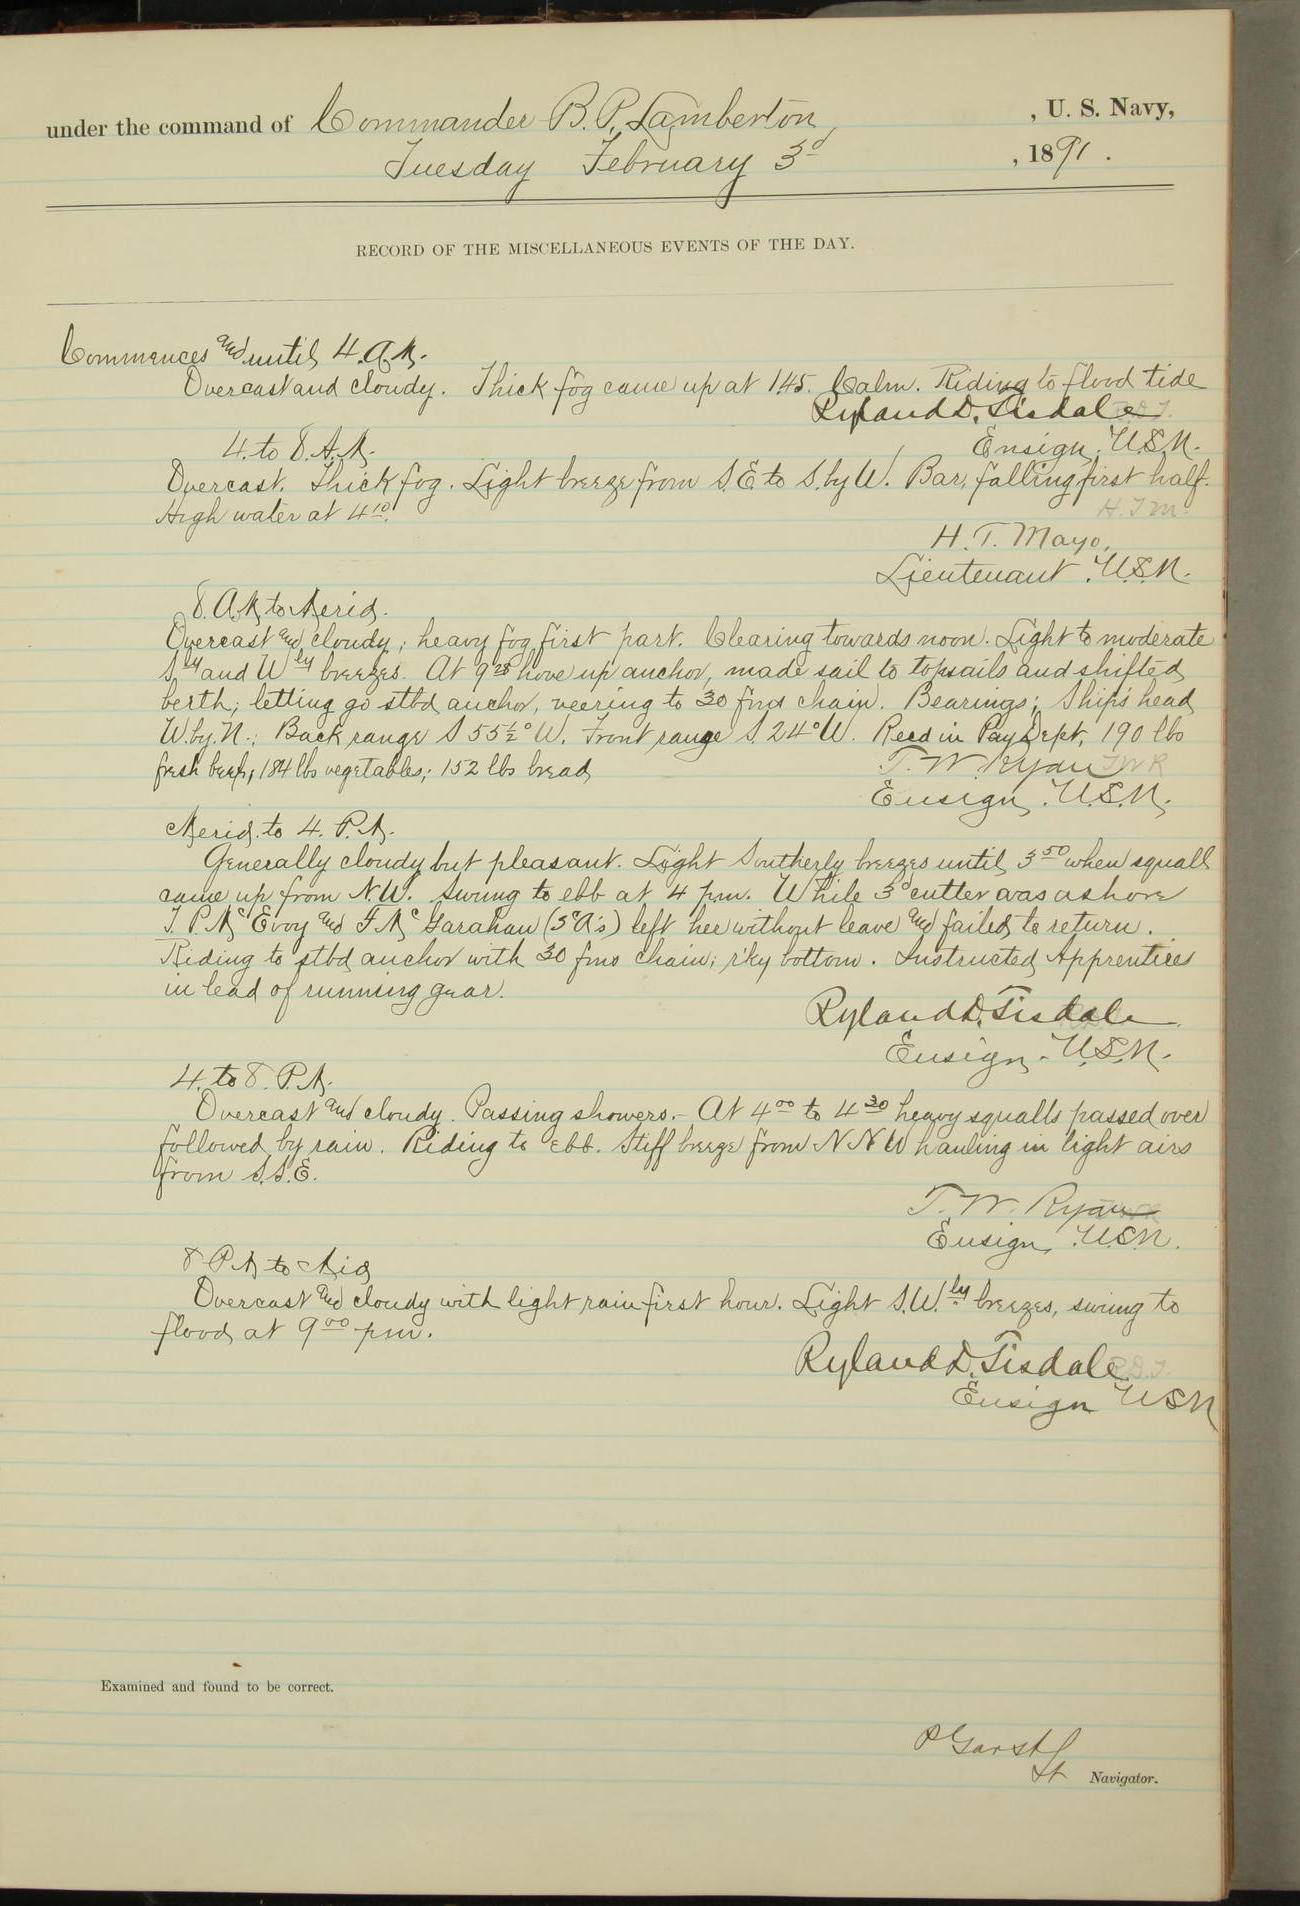 under the command of Commander B. P. Lamberton, , U. S. Navy,
Tuesday February 3d , 1891.
RECORD OF THE MISCELLANEOUS EVENTS OF THE DAY.
Commences and until 4. A.M.
Overcast and cloudy. Thick fog came up at 1.45. Calm. Riding to flood tide
Ryland D. Tisdale
Ensign, U.S.N.
4. to 8. A.M.
Overcast. Thick fog. Light breeze from S.E. to S. by W. Bar. falling first half.
High water at 4 10.
H. T. M.
H. T. Mayo,
Lieutenant, U.S.N.
8. A.M. to Merid.
Overcast and cloudy; heavy fog first part. Clearing towards noon. Light to moderate
Sly and Wly breezes. At 9 25 hove up anchor, made sail to topsails and shifted
berth; letting go stbd anchor, veering to 30 fms chain. Bearings; Ship's head
W. by. N.; Back range S 55½° W. Front range S. 24° W. Recd in Pay Dept. 190 lbs
fresh beef; 184 lbs vegetables; 152 lbs bread
T. W. Ryan T W R
Ensign, U.S.N.
Merid. to 4. P.M.
Generally cloudy but pleasant. Light Southerly breezes until 3 50 when squall
came up from N.W. Swung to ebb at 4 pm. While 3d cutter was ashore
J. P. McEvoy and F. McGarahan left her without leave and failed to return.
Riding to stbd anchor with 30 fms chain; r'ky bottom. Instructed Apprentices
in lead of running gear.
Ryland D. Tisdale
Ensign. U.S.N.
4. to 8. P.M.
Overcast and cloudy. Passing showers.- At 4 00 to 4 30 heavy squalls passed over
followed by rain. Riding to ebb. Stiff breeze from N N W hauling in light airs
from S.S.E.
T. W. Ryan
Ensign, U.S.N.
8 P.M to Mid
Overcast and cloudy with light rain first hour. Light S.W.ly breezes, swung to
flood at 9 00 pm.
Ryland D. Tisdale R.D.T.
Ensign USN
Examined and found to be correct.
P Garst
Lt Navigator.